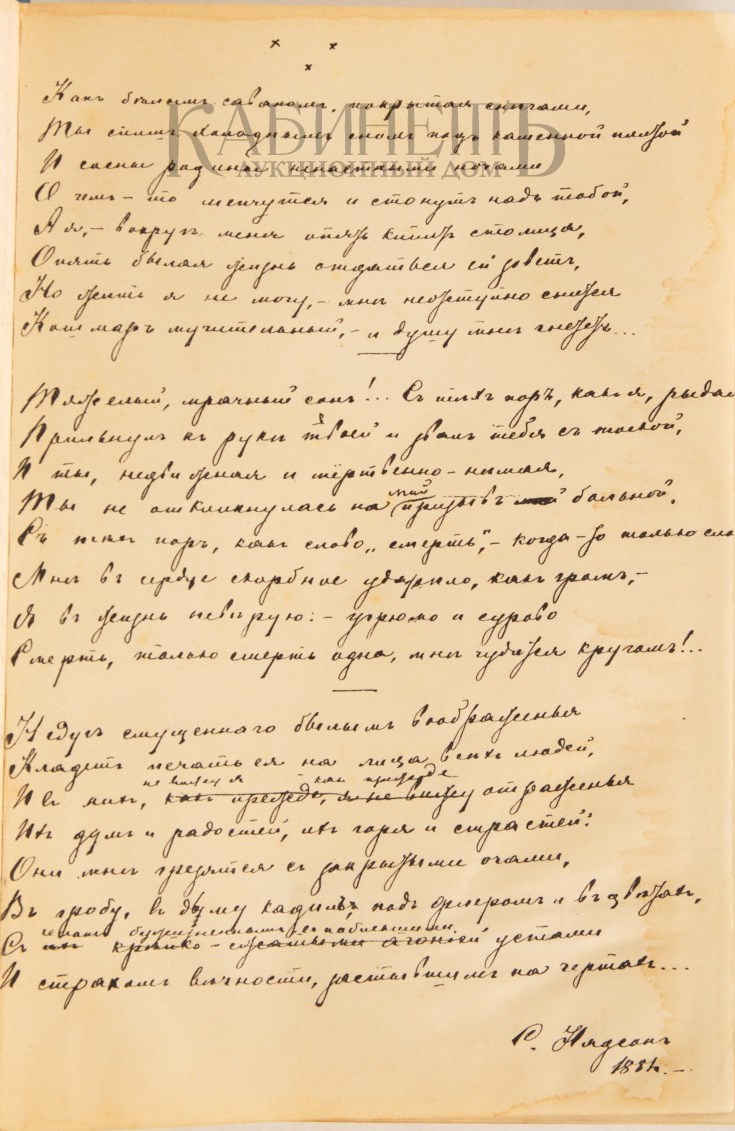 х х
х
Какъ бѣлымъ саваномъ, покрытая снѣгами,
КАБИНЕТЪ
Ты спишь холоднымъ сномъ подъ каменной плитой
АУКЦИОННЫЙ ДОМ
И сосны родины ненастными ночами
О чемъ-то шепчутся и стонутъ надъ тобой,
А я,- вокругъ меня опять кипитъ столица,
Опять былая жизнь отдаться ей зоветъ,
Но жить я не могу,- мнѣ неотступно снится
Кошмаръ мучительный,- и душу мнѣ гнететъ...
Тяжелый, мрачный сонъ!.. Съ тѣхъ поръ, какъ я, рыдая
Прильнулъ къ рукѣ твоей и звалъ тебя съ тоской,
И ты, недвижная и мёртвенно-нѣмая,
Ты не откликнулась на мой призывъ больной,
Съ тѣхъ поръ, какъ слово „смерть",- когда-то только сло
Мнѣ въ сердце скорбное ударило, какъ громъ,-
Я въ жизнь невѣрую:- угрюмо и сурово
Смерть, только смерть одна, мнѣ чудится кругомъ!..
Недугъ смущеннаго былымъ воображенья
Кладетъ печать ея на лица всѣхъ людей,
не вижу я какъ прежде
И въ нихъ, какъ прежде, я не вижу отраженья
Ихъ думъ и радостей, ихъ горя и страстей:
Они мнѣ грезятся съ закрытыми очами,
Въ гробу, въ дыму кадилъ, подъ флеромъ и въ цвѣтахъ,
Съ крѣпко-сжатыми устами
И страхомъ вѣчности, застывшимъ на чертахъ...
С. Надсонъ
188